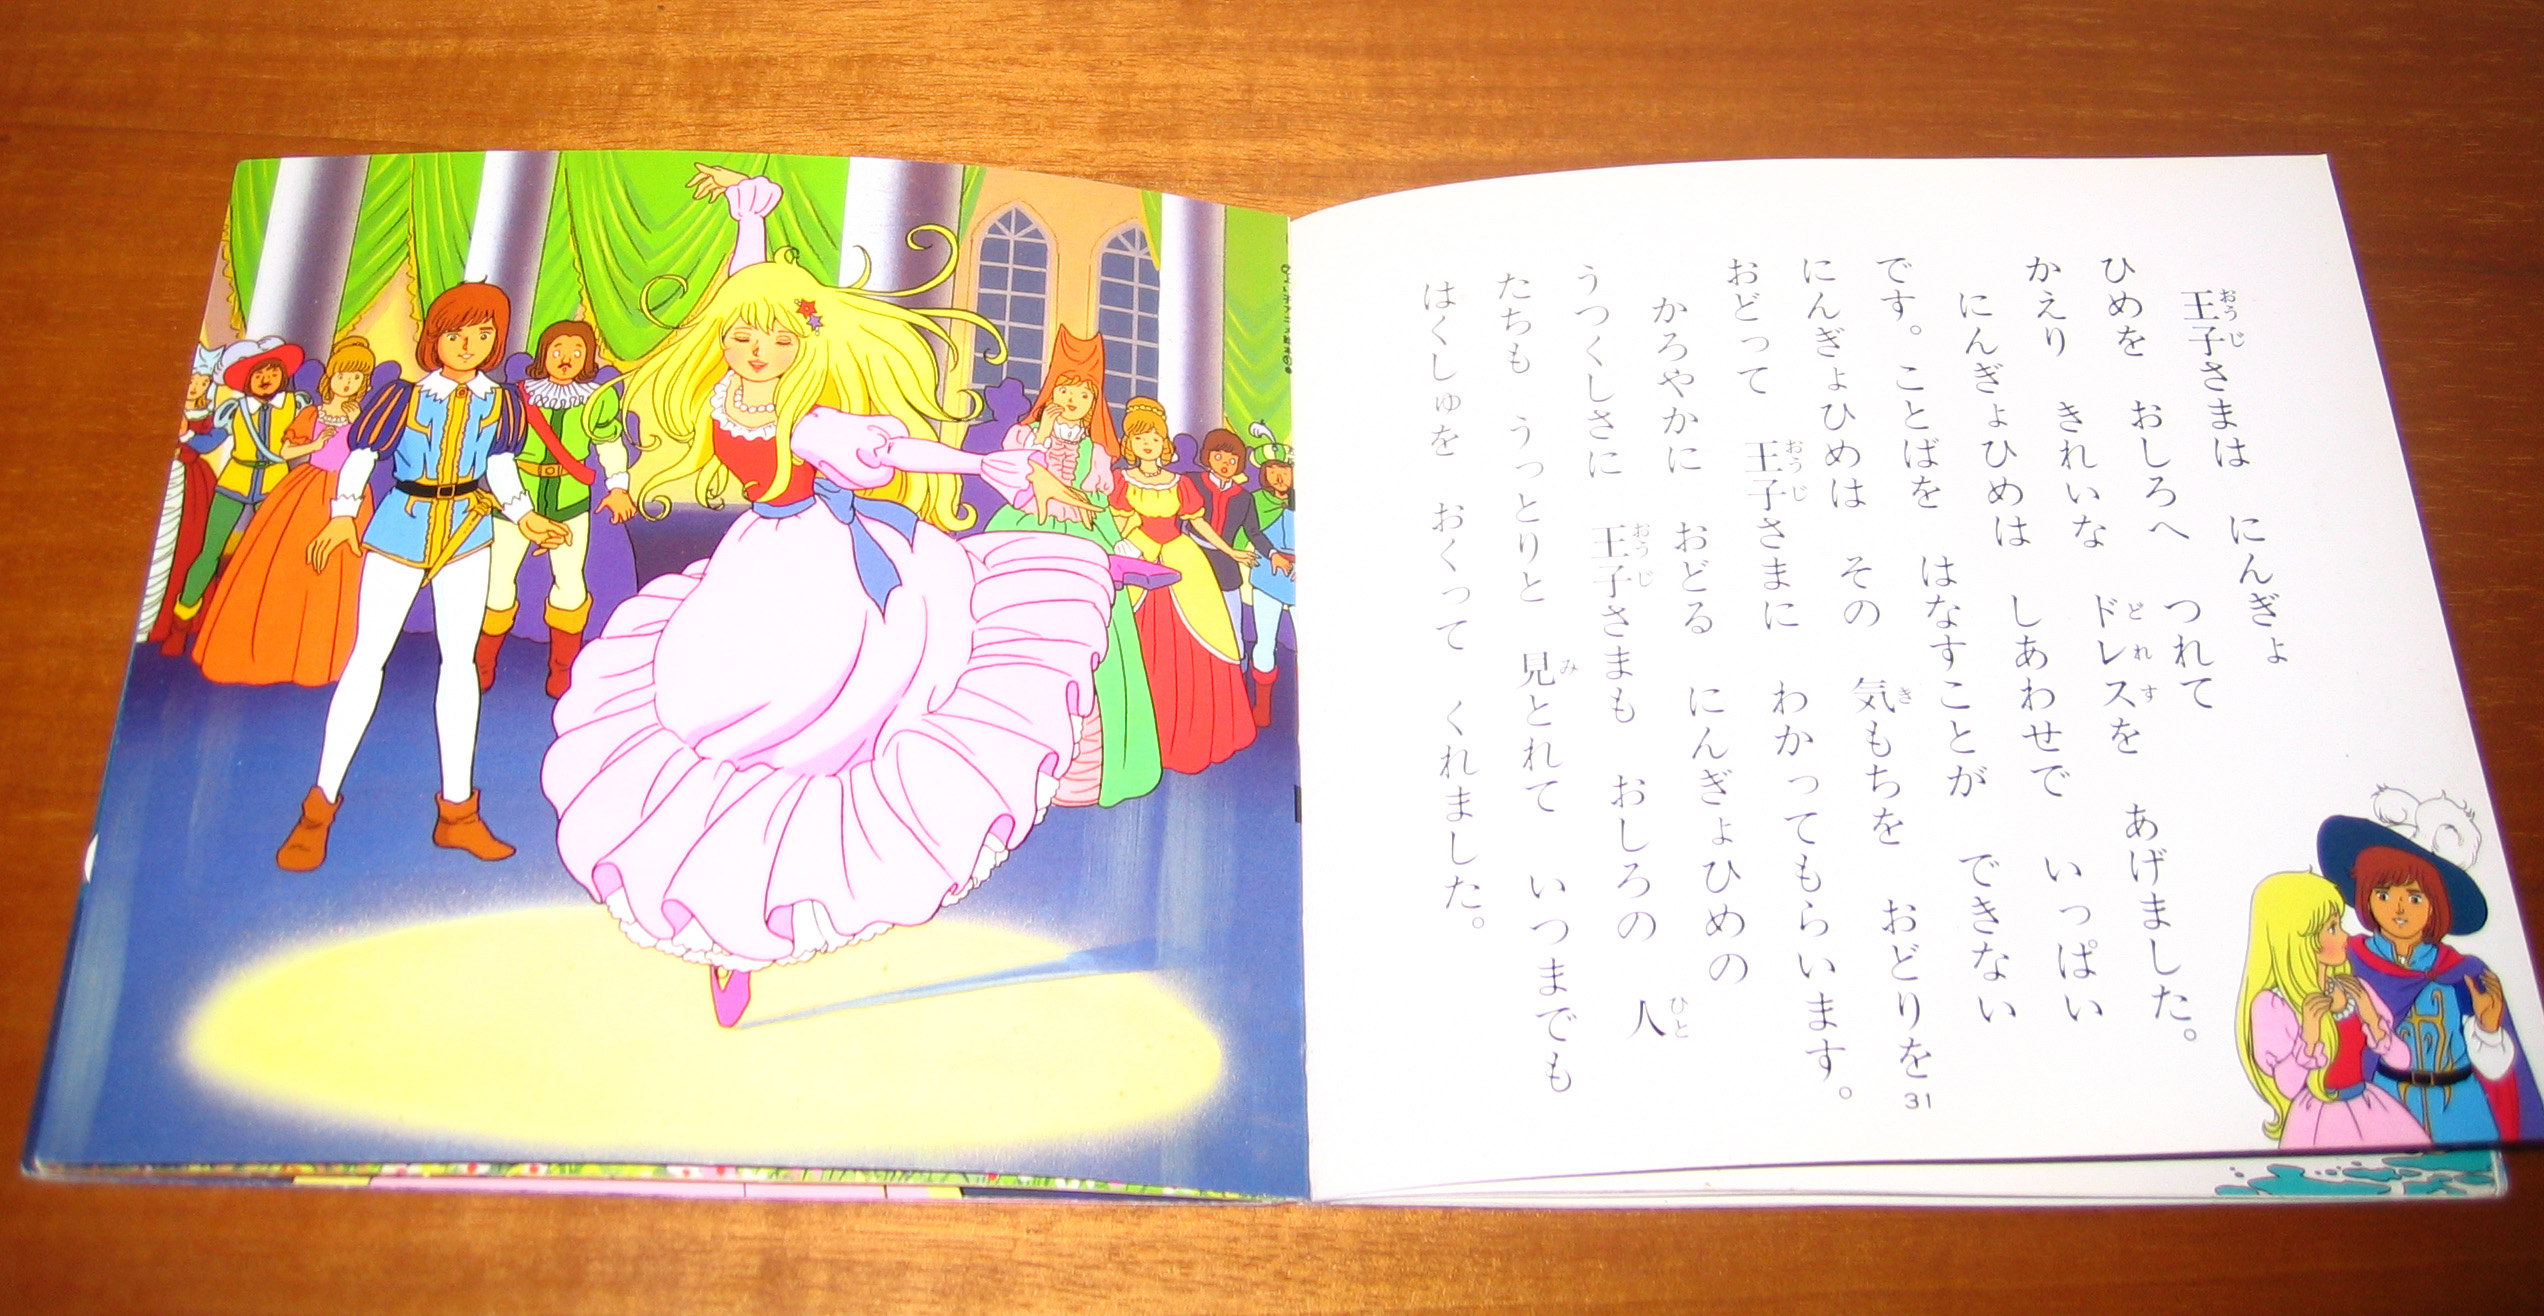 王子さまは にんぎょ
ひめを おしろへ つれて
かえり きれいな ドレスを あげました。
にんぎょひめは しあわせで いっぱい
です。ことばを はなすことが できない
にんぎょひめは その 気もちを おどりを
おどって 王子さまに わかってもらいます。
かろやかに おどる にんぎょひめの
うつくしさに 王子さまも おしろの 人
たちも うっとりと 見とれて いつまでも
はくしゅを おくって くれました。
31